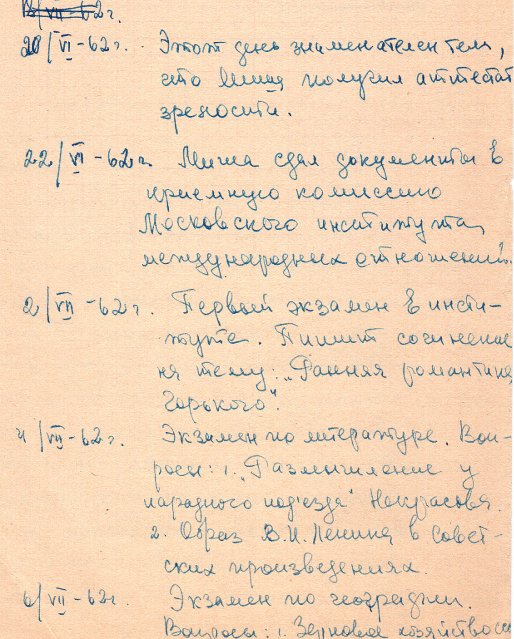 20/VI-62г. Этот день знаменателен тем,
что Миша получил аттестат
зрелости.
22/VI-62г. Миша сдал документы в
приемную комиссию
Московского института
международных отношений.
2/VII-62г. Первый экзамен в инсти-
туте. Пишит сочинение
на тему: „Ранняя романтика
Горького".
4/VII-62г. Экзамен по литературе. Воп-
росы: 1. „Размышление у
парадного под'езда" Некрасова.
2. Образ В.И. Ленина в Совет-
ских произведениях.
6/VII-62г. Экзамен по географии.
Вопросы: 1. Зерновое хозяйство